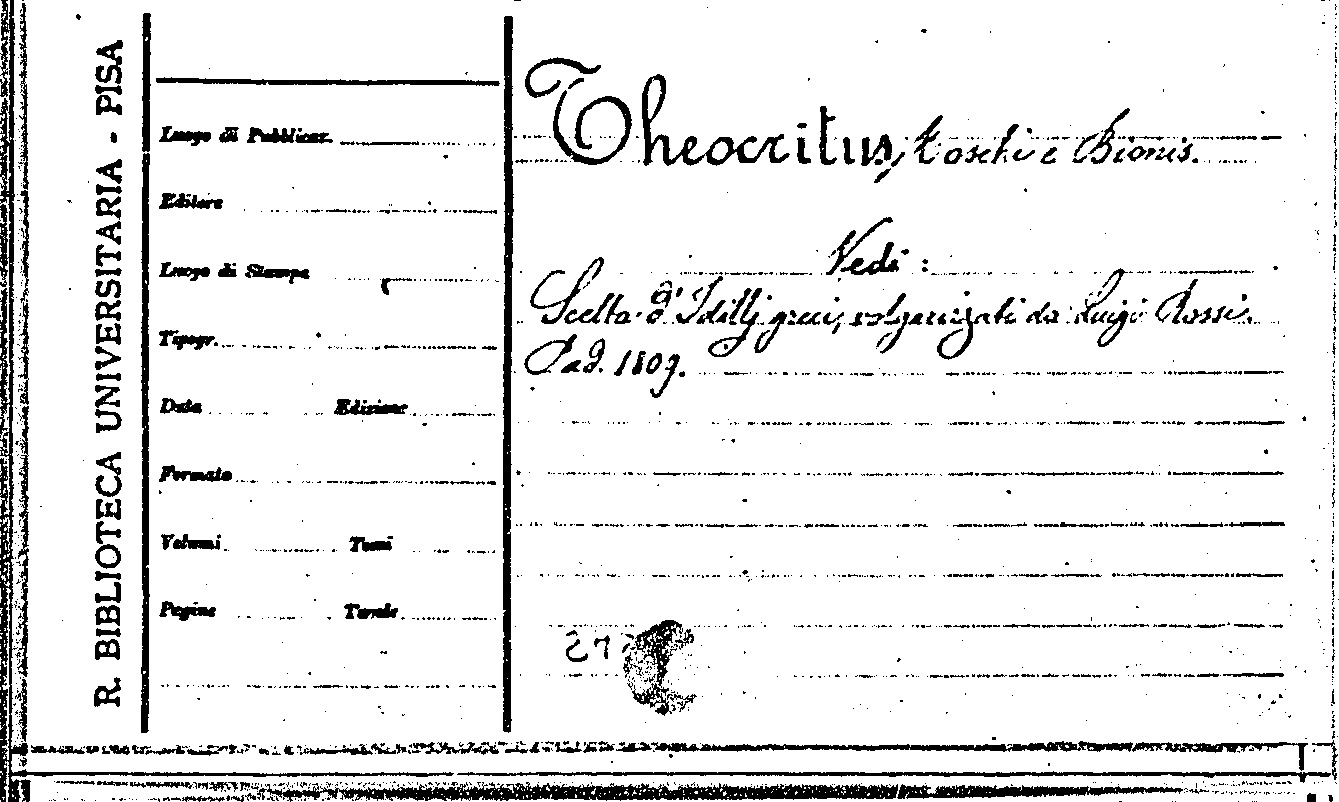 R. BIBLIOTECA UNIVERSITARIA - PISA
Luogo di Pubblicaz.
Editore
Luogo di Stampa
Tipogr.
Data Edizione
Formato
Volumi Tomi
Pagine Tavole
Theocritus, Moschi e Bionis.
Vedi :
Scelta d'Idillj greci, volgarizzati da Luigi Rossi.
Pad. 1809.